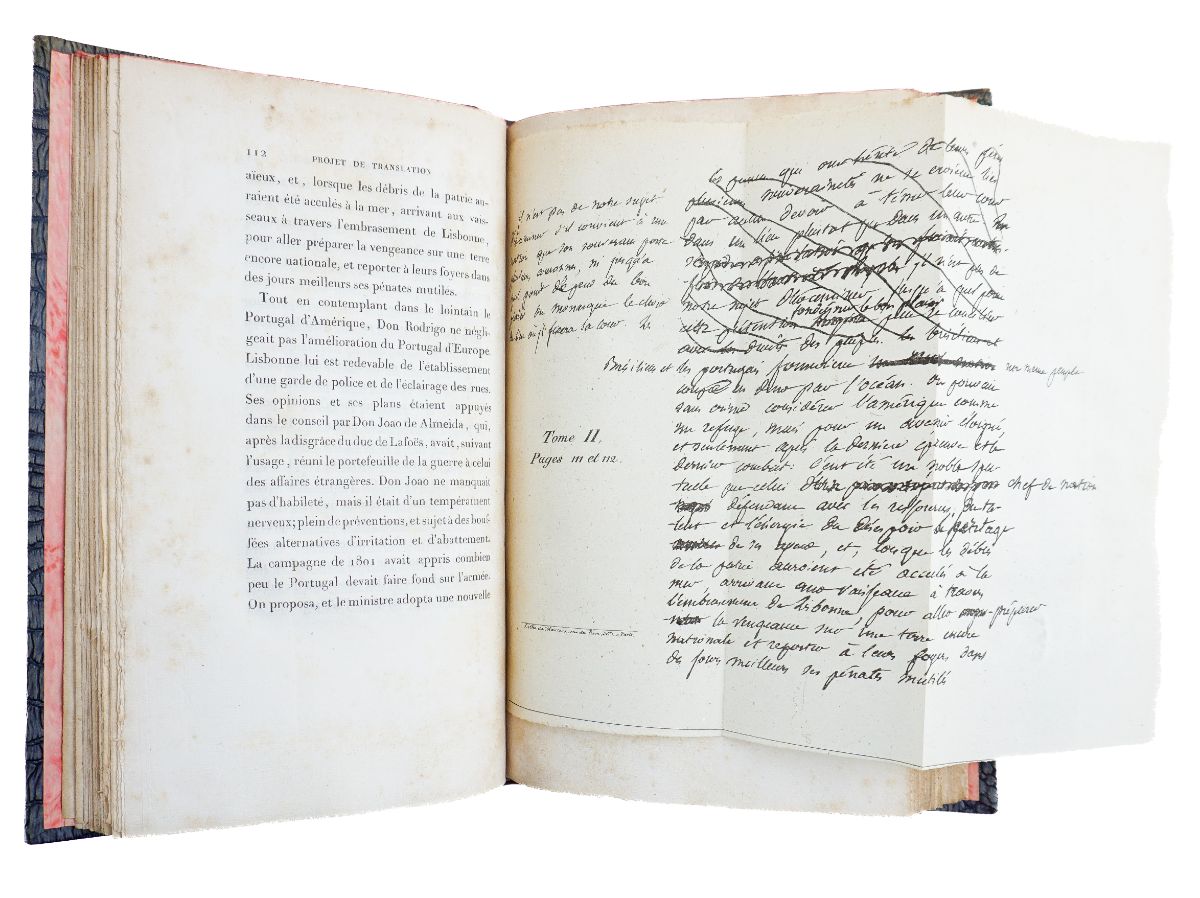 112
PROJET DE TRANSLATION
aïeux, et, lorsque les débris de la patrie au-
raient été acculés à la mer, arrivant aux vais-
seaux à travers l'embrasement de Lisbonne,
pour aller préparer la vengeance sur une terre
encore nationale, et reporter à leurs foyers dans
des jours meilleurs ses pénates mutilés.
Tout en contemplant dans le lointain le
Portugal d'Amérique, Don Rodrigo ne négli-
geait pas l'amélioration du Portugal d'Europe.
Lisbonne lui est redevable de l'etablissement
d'une garde de police et de l'éclairage des rues.
Ses opinions et ses plans étaient appuyés
dans le conseil par Don Joao de Almeida, qui,
après la disgrâce du duc de Lafoës, avait, suivant
l'usage, réuni le portefeuille de la guerre à celui
des affaires étrangères. Don Joao ne manquait
pas d'habileté, mais il était d'un tempérament
nerveux; plein de préventions, et sujet à des bouf-
fées alternatives d'irritation et d'abattement.
La campagne de 1801 avait appris combien
peu le Portugal devait faire fond sur l'armée.
On proposa, et le ministre adopta une nouvelle
il n'est pas de notre sujet
d'examiner s'il convient à un
que son souverain porte
ni jusqu'à
quel point de peur du bon
du monarque le choix
du lieu où il fixera la cour. Les
qui ont hérité de leurs pères
souverainetés ne se croient liés
par aucun devoir à tenir leur cour
dans un lieu plutot que dans un autre
il n'est pas de
notre sujet d'examiner jusqu'à quel point
cette prétention peut se concilier
avec les droits des peuples. les brésiliens et
Brésiliens et les portugais formoient un même peuple
coupé en deux par l'océan. On pouvoit
sans crime considérer l'amérique comme
un refuge, mais pour un avenir éloigné,
et seulement après la dernière épreuve et le
dernier combat. C'eut été un noble spec-
tacle que celui d'un chef de nation
défendant avec les ressources du ta-
lent et l'énergie du désespoir l'héritage
de ses ayeux, et, lorsque les débris
de la patrie auroient été acculés à la
mer arrivant aux vaisseaux à travers
l'embrasement de Lisbonne, pour aller préparer
la vengeance sur une terre encore
nationale et reporter à leurs foyers dans
des jours meilleurs ses pénates mutilés
Tome II,
Pages 111 et 112.